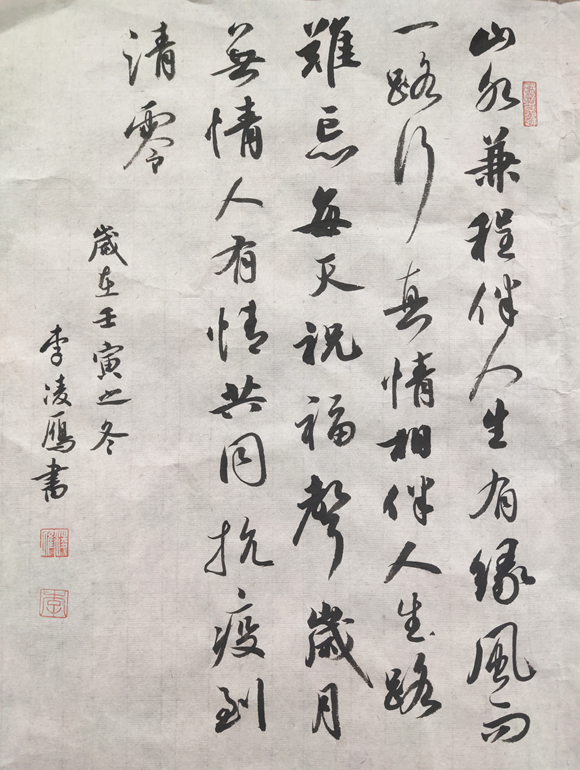 山水兼程伴人生有緣風雨
一路行真情相伴人生路
難忘每天祝福聲歲月
無情人有情共同抗疫到
清零
歲在壬寅之冬
李凌鴈書